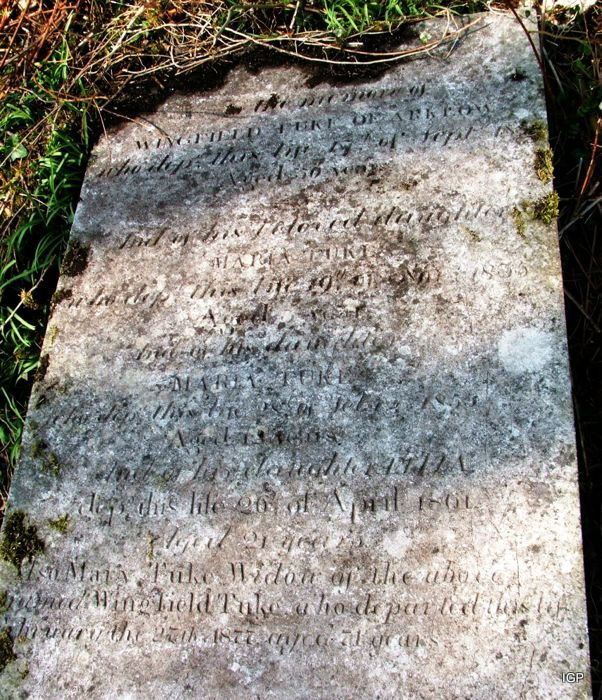 to the memory of
WINGFIELD TUKE OF ARKLOW
who dep. this life of Sept.
Aged 50 years
And of his beloved daughter
MARIA TUKE
who dep. this life 19th of 1835
Aged
And of his daughter
MARIA TUKE
who dep. this life 28th of
Aged
And of his daughter ELIZA
dep. this life 26. of April 1861
Aged 21 years
Also Mary Tuke Widow of the above
named Wingfield Tuke who departed this life
January the 27th 1877 aged 71 years
IGP